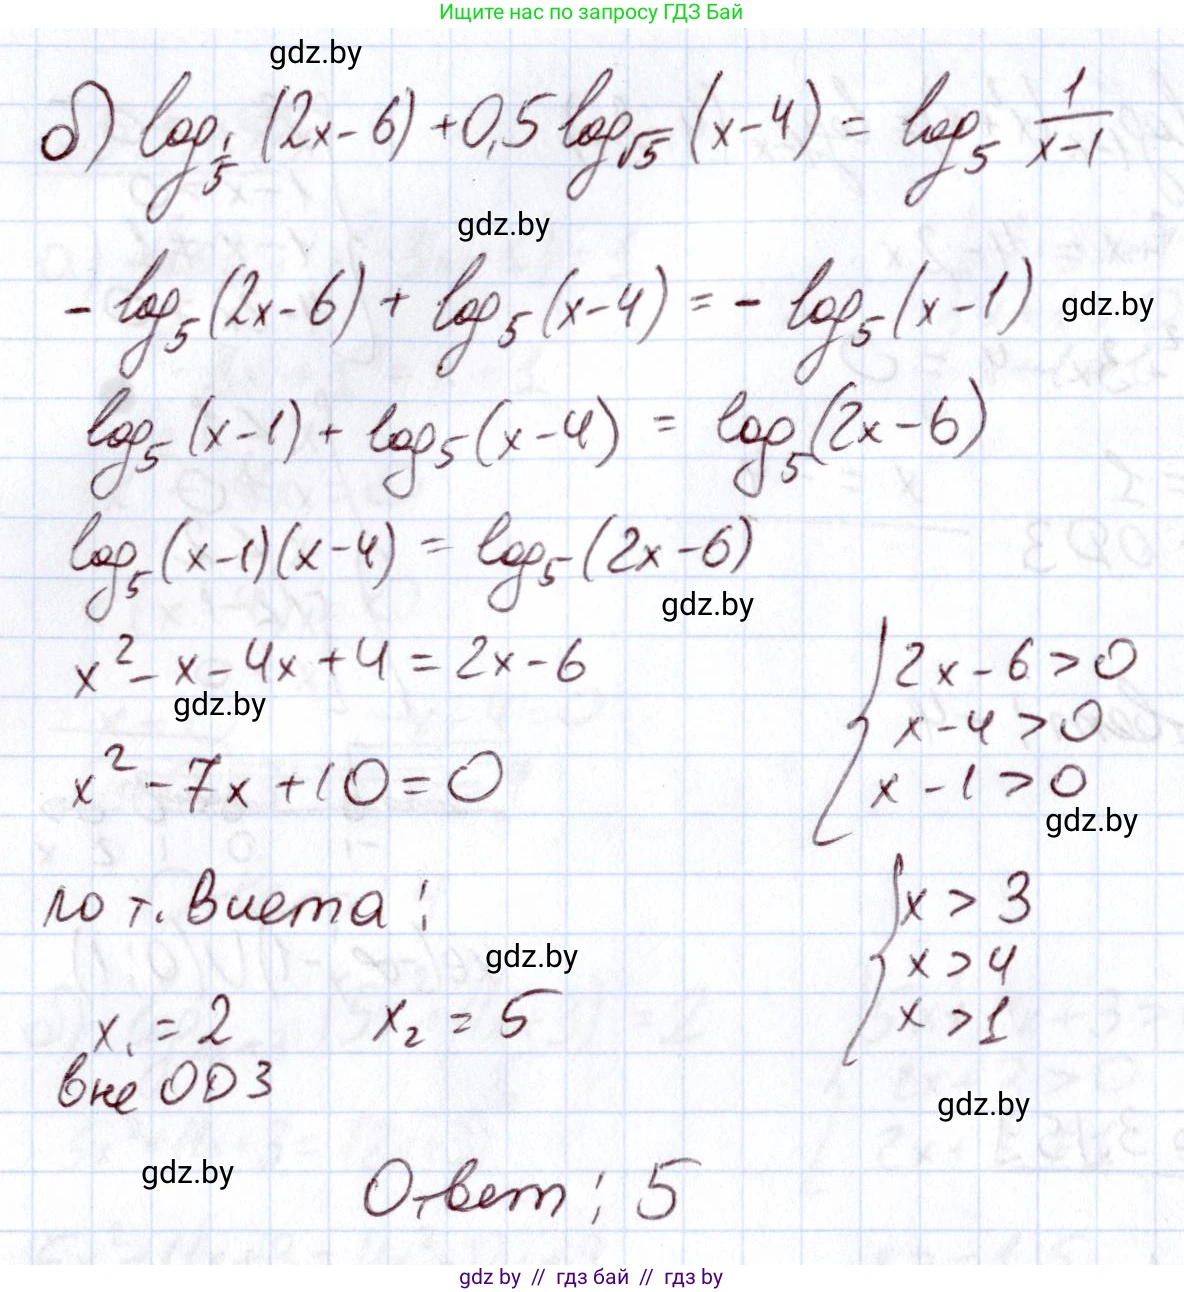 Ищите нас по запросу ГДЗ Бай
gdz.by
б) log_{1/5} (2x-6) + 0,5 log_{√5} (x-4) = log_5 1/(x-1)
gdz.by
- log_5 (2x-6) + log_5 (x-4) = - log_5 (x-1)
gdz.by
log_5 (x-1) + log_5 (x-4) = log_5 (2x-6)
log_5 (x-1)(x-4) = log_5 (2x-6)
gdz.by
x² - x - 4x + 4 = 2x - 6
gdz.by
x² - 7x + 10 = 0
2x - 6 > 0
x - 4 > 0
x - 1 > 0
gdz.by
по т. Виета:
x > 3
x > 4
x > 1
gdz.by
x₁ = 2 x₂ = 5
вне ОДЗ
gdz.by
gdz.by
Ответ: 5
gdz by // гдз бай // гдз by